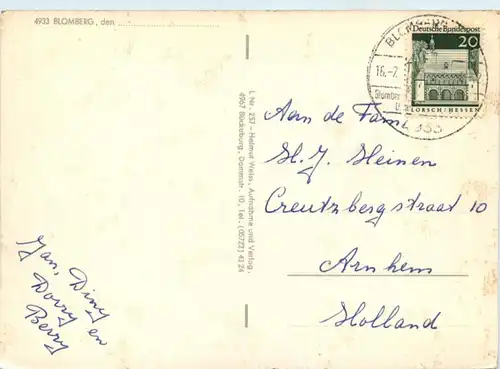 4933 BLOMBERG, den
L Nr. 257 - Helmut Weiss, Aufnahme und Verlag,
4967 Bückeburg, Dammstr. 10, Tel. (05722) 43 24
BLOMBERG
16.-7.
Blomberg
4933
Deutsche Bundespost
20
LORSCH/HESSEN
Aan de Fam
H. J. Heinen
Creutzbergstraat 10
Arnhem
Holland
Jan, Diny
Dorry en
Berry